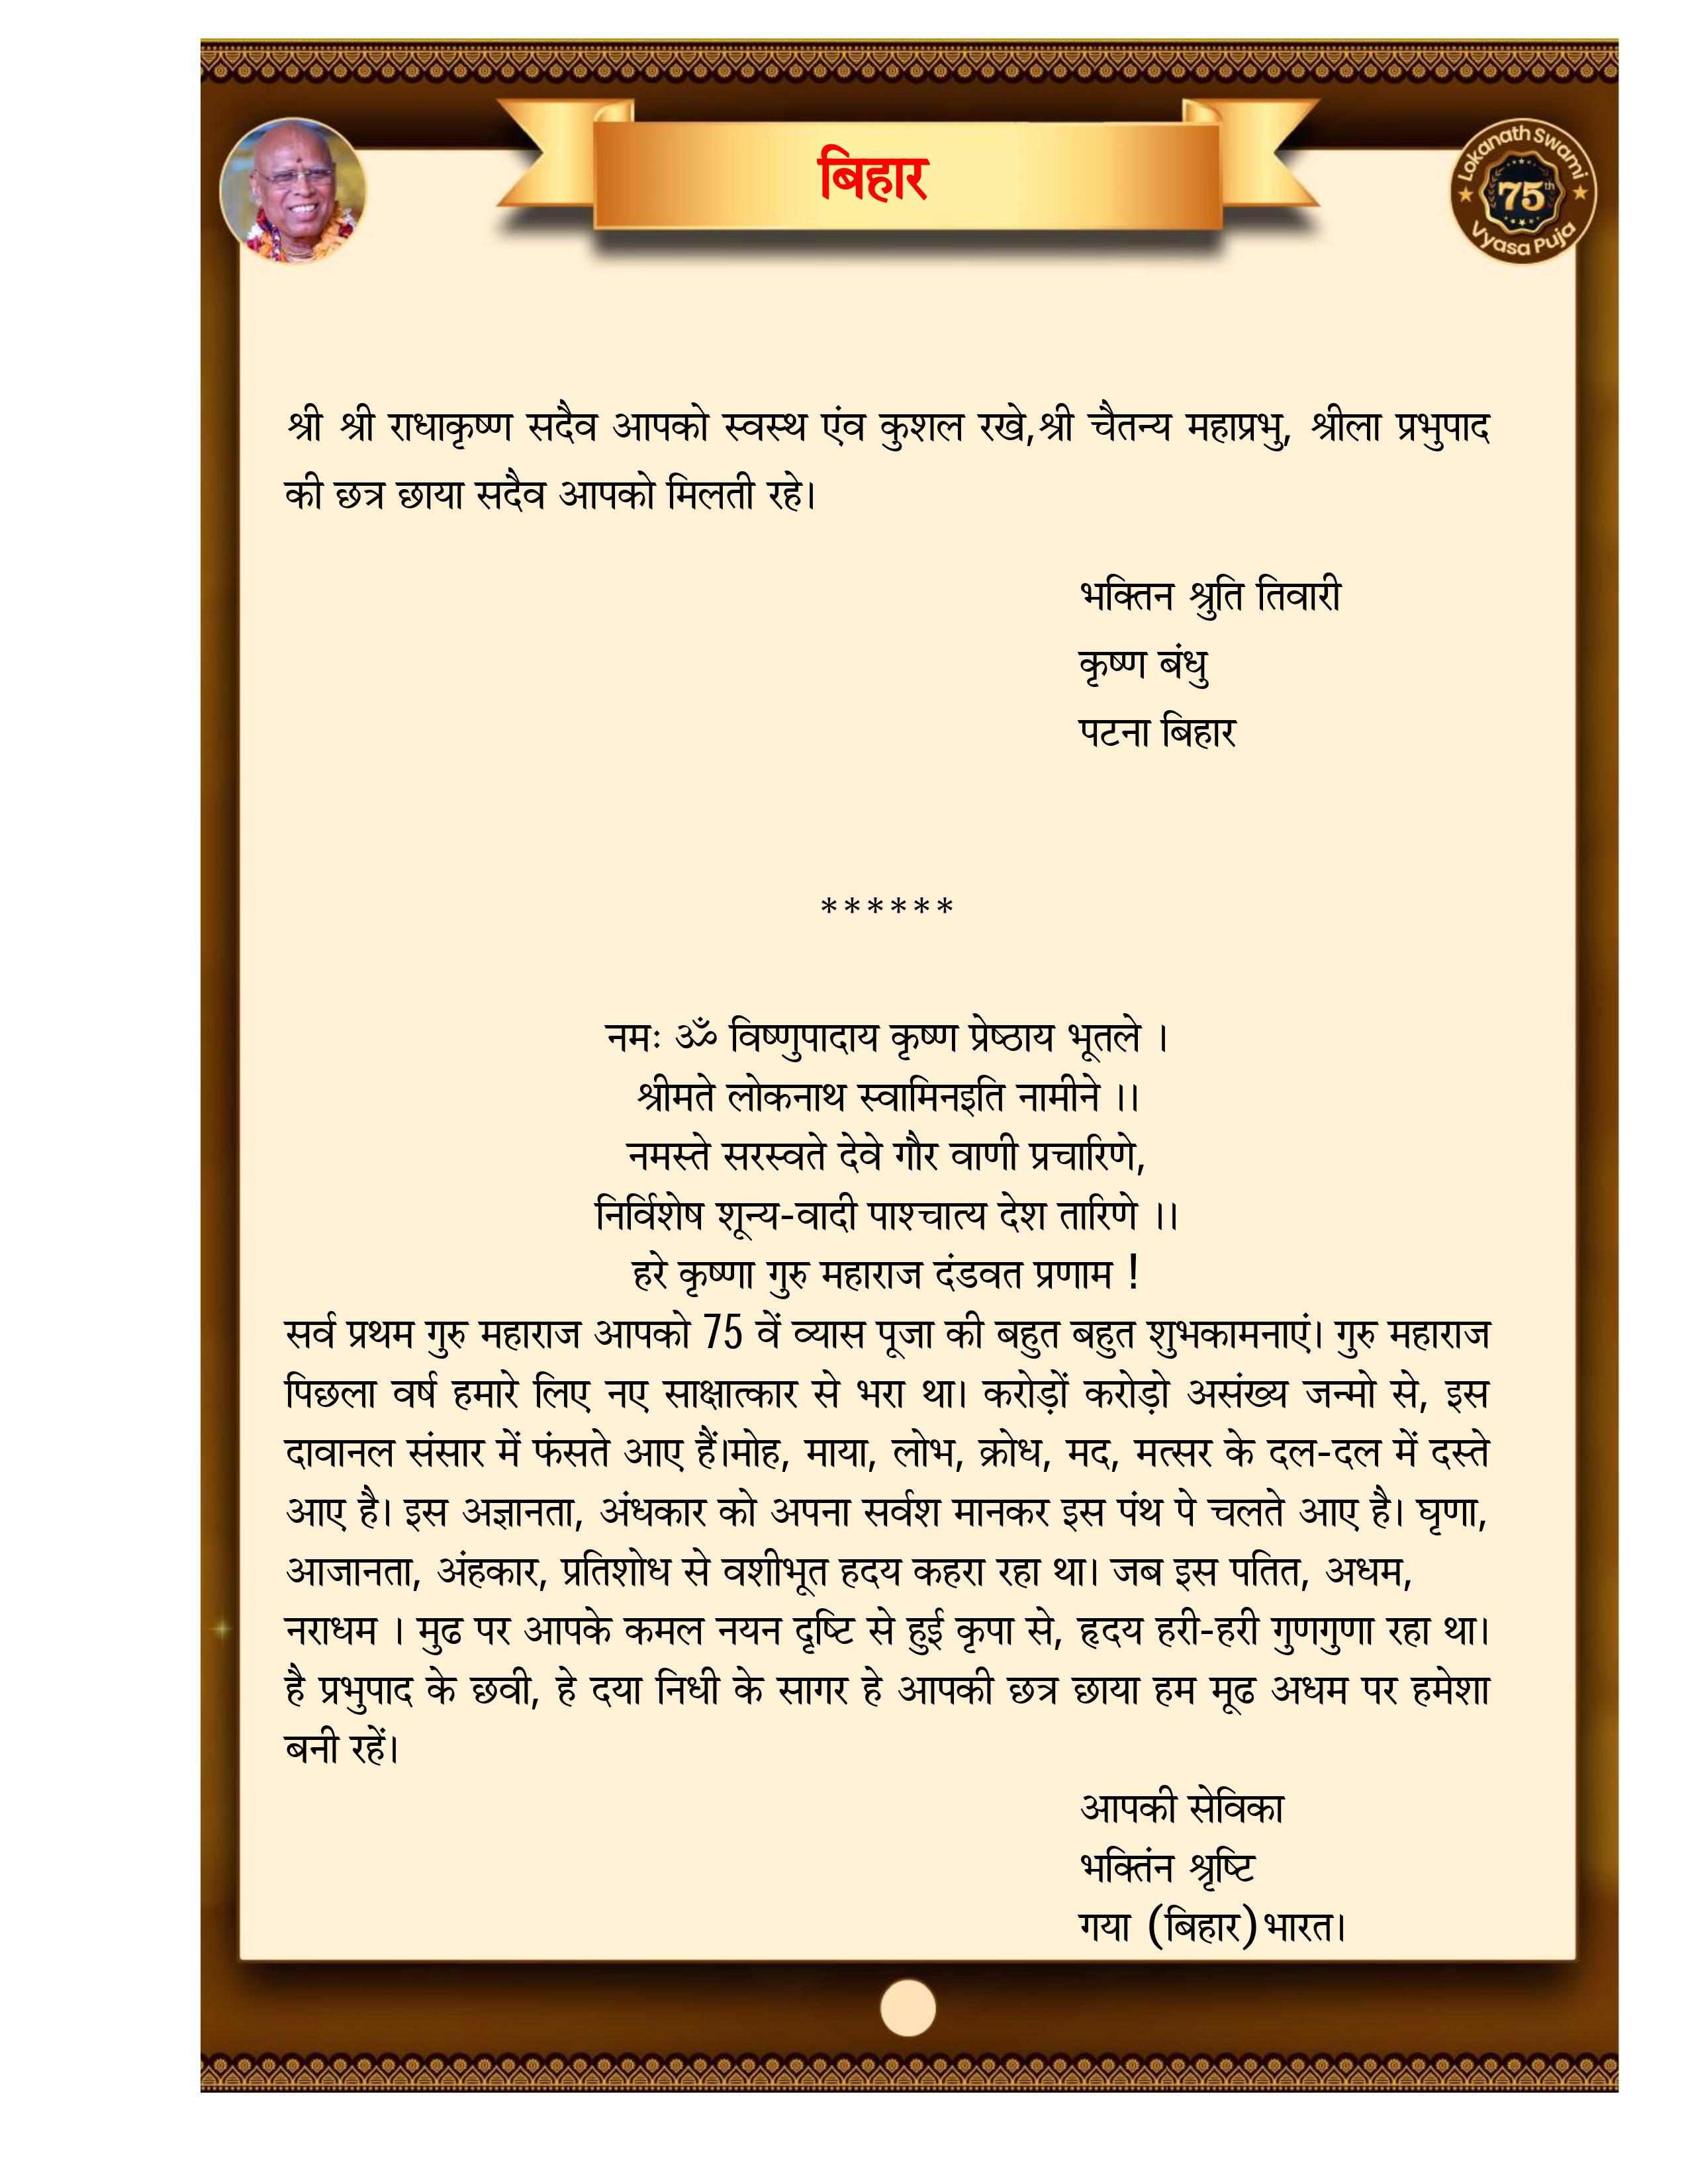 बिहार
Lokanath Swami
75th
Vyasa Puja
श्री श्री राधाकृष्ण सदैव आपको स्वस्थ एंव कुशल रखे,श्री चैतन्य महाप्रभु, श्रीला प्रभुपाद
की छत्र छाया सदैव आपको मिलती रहे।
भक्तिन श्रुति तिवारी
कृष्ण बंधु
पटना बिहार
******
नमः ॐ विष्णुपादाय कृष्ण प्रेष्ठाय भूतले ।
श्रीमते लोकनाथ स्वामिनइति नामीने ।।
नमस्ते सरस्वते देवे गौर वाणी प्रचारिणे,
निर्विशेष शून्य-वादी पाश्चात्य देश तारिणे ।।
हरे कृष्णा गुरु महाराज दंडवत प्रणाम !
सर्व प्रथम गुरु महाराज आपको 75 वें व्यास पूजा की बहुत बहुत शुभकामनाएं। गुरु महाराज
पिछला वर्ष हमारे लिए नए साक्षात्कार से भरा था। करोड़ों करोड़ो असंख्य जन्मो से, इस
दावानल संसार में फंसते आए हैं।मोह, माया, लोभ, क्रोध, मद, मत्सर के दल-दल में दस्ते
आए है। इस अज्ञानता, अंधकार को अपना सर्वश मानकर इस पंथ पे चलते आए है। घृणा,
आजानता, अंहकार, प्रतिशोध से वशीभूत हदय कहरा रहा था। जब इस पतित, अधम,
नराधम । मुढ पर आपके कमल नयन दृष्टि से हुई कृपा से, हृदय हरी-हरी गुणगुणा रहा था।
है प्रभुपाद के छवी, हे दया निधी के सागर हे आपकी छत्र छाया हम मूढ अधम पर हमेशा
बनी रहें।
आपकी सेविका
भक्तिंन श्रृष्टि
गया (बिहार)भारत।